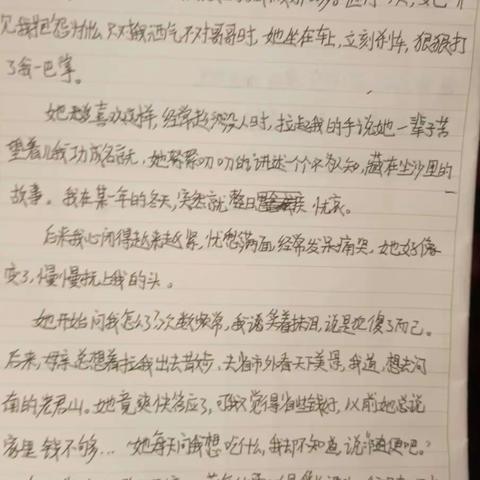 见我抱怨为什么只对我洒气不对哥哥时,她坐在车上,立刻刹车,狠狠打
了我一巴掌。
她老喜欢这样,经常趁没人时,拉起我的手说她一辈子苦
望着儿我功成名就,她絮絮叨叨的讲述一个个不为人知,藏在尘沙里的
故事。我在某一年的冬天,突然就整日 忧哀。
后来我心闭得越来越紧,忧愁满面,经常发呆痛哭,她好像
变了,慢慢抚上我的头。
她开始问我怎么了,次数频常,我说笑着抹泪,说是犯傻了而已。
后来,母亲总想着拉我出去散步,去省市外看天下美景,我道,想去河
南的老君山。她竟爽快答应了,可我又觉得省些钱好,以前她总说
家里钱不够... 她每天问我想吃什么,我却不知道,说“随便吧。”